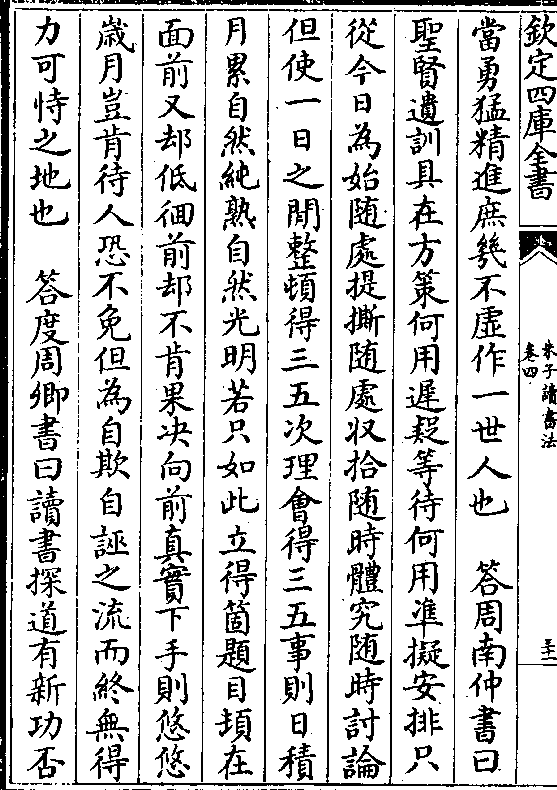 欽定四庫全書
朱子讀書法
卷四
當勇猛精進庶幾不虚作一世人也　答周南仲書曰
聖賢遺訓具在方策何用遲疑等待何用準擬安排只
從今日為始随處提撕随處収拾随時體究随時討論
但使一日之間整頓得三五次理會得三五事則日積
月累自然純熟自然光明若只如此立得箇題目頓在
面前又却低徊前却不肯果决向前真實下手則悠悠
歲月豈肯待人恐不免但為自欺自誣之流而終無得
力可恃之地也　答度周卿書曰讀書探道有新功否